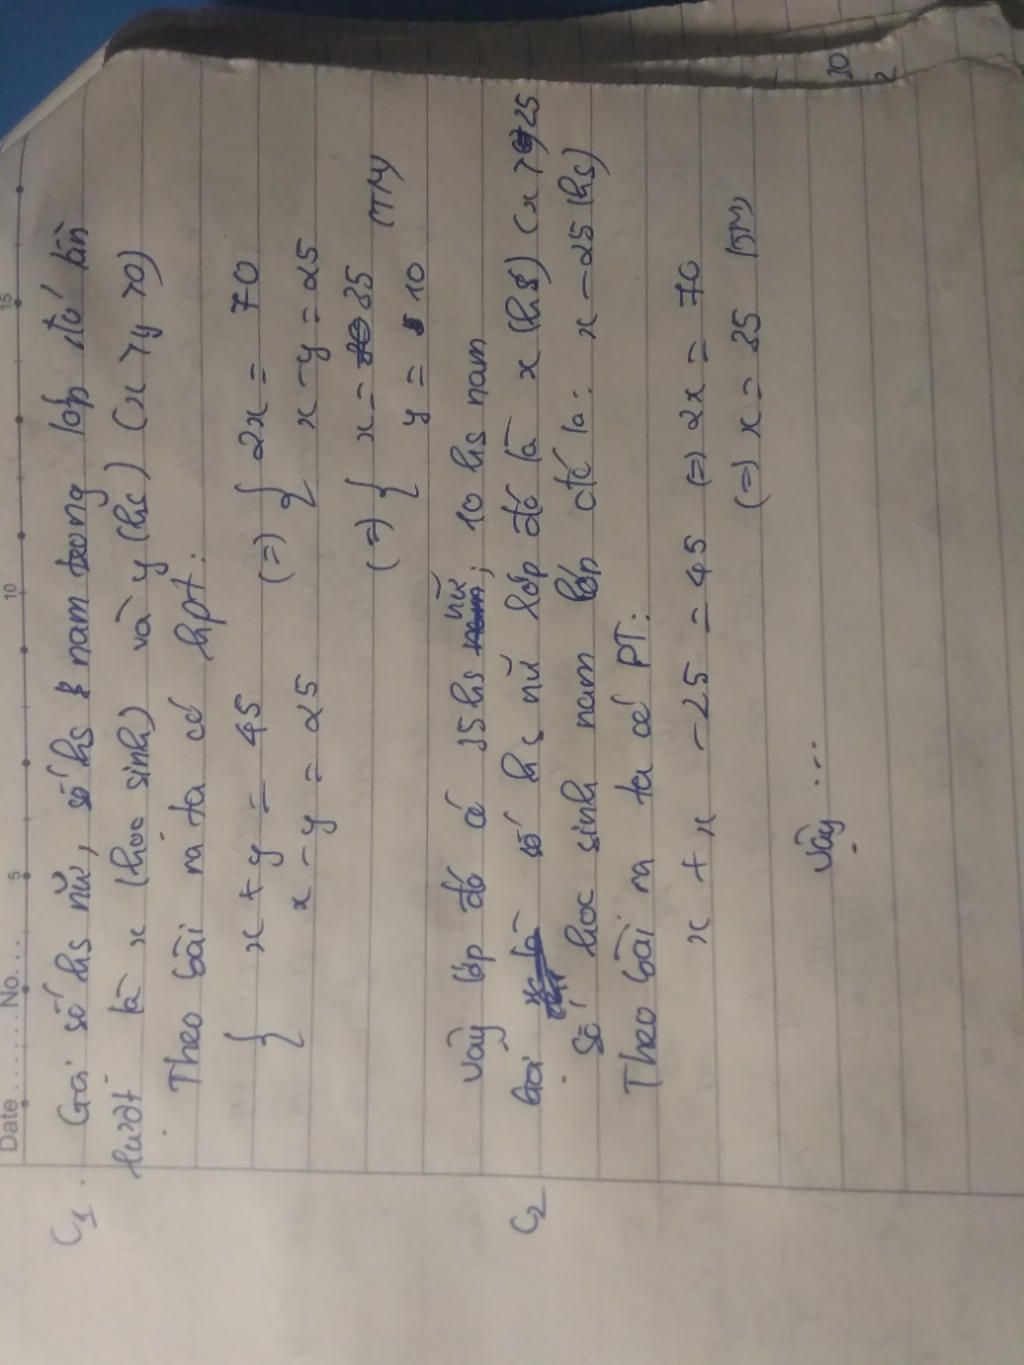 Date ........ No. ...
5 10 15
C1. Gọi số hs nữ, số hs nam trong lớp đó lần
lượt là x (học sinh) và y (hs) (x > y > 0)
Theo bài ra ta có hpt:
{ x + y = 45 (=) { 2x = 70
x - y = 25 x - y = 25
(=) { x = 35 (TM)
y = 10
Vậy lớp đó có 35 hs nữ; 10 hs nam
C2 Gọi số hs nữ lớp đó là x (hs) (x > 25
Số học sinh nam lớp đó là: x - 25 (hs)
Theo bài ra ta có PT:
x + x - 25 = 45 (=) 2x = 70
(=) x = 35 (TM)
Vậy ...
30
2